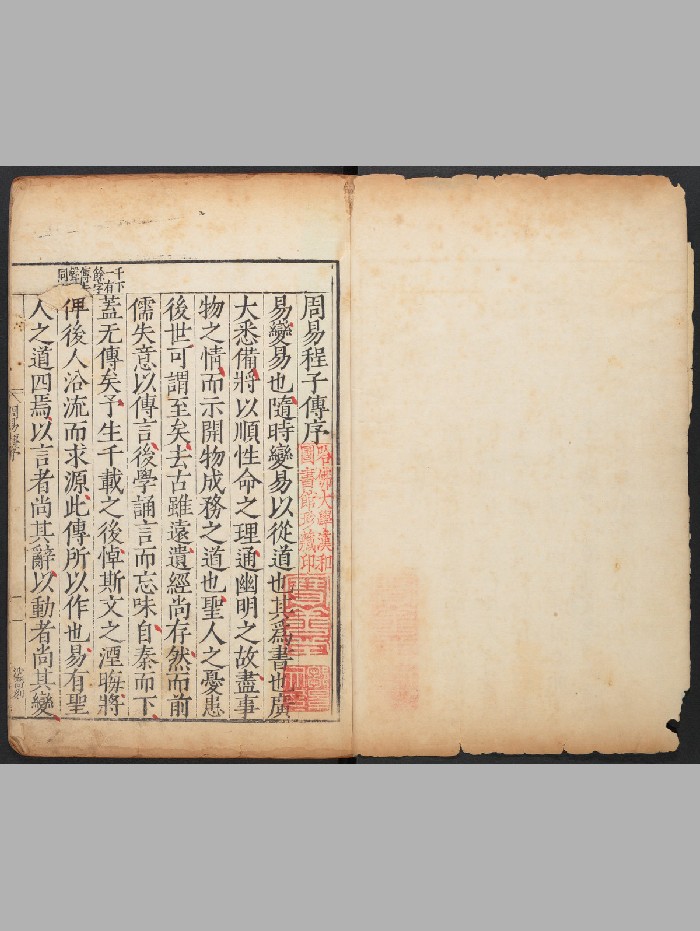 周易程子傳序
易變易也隨時變易以從道也其爲書也廣
大悉備將以順性命之理通幽明之故盡事
物之情而示開物成務之道也聖人之憂患
後世可謂至矣去古雖遠遺經尚存然而前
儒失意以傳言後學誦言而忘味自秦而下
蓋无傳矣予生千載之後悼斯文之湮晦將
俾後人沿流而求源此傳所以作也易有聖
人之道四焉以言者尚其辭以動者尚其變
千下
一有
餘字
哈佛大學漢和
圖書館珍藏印